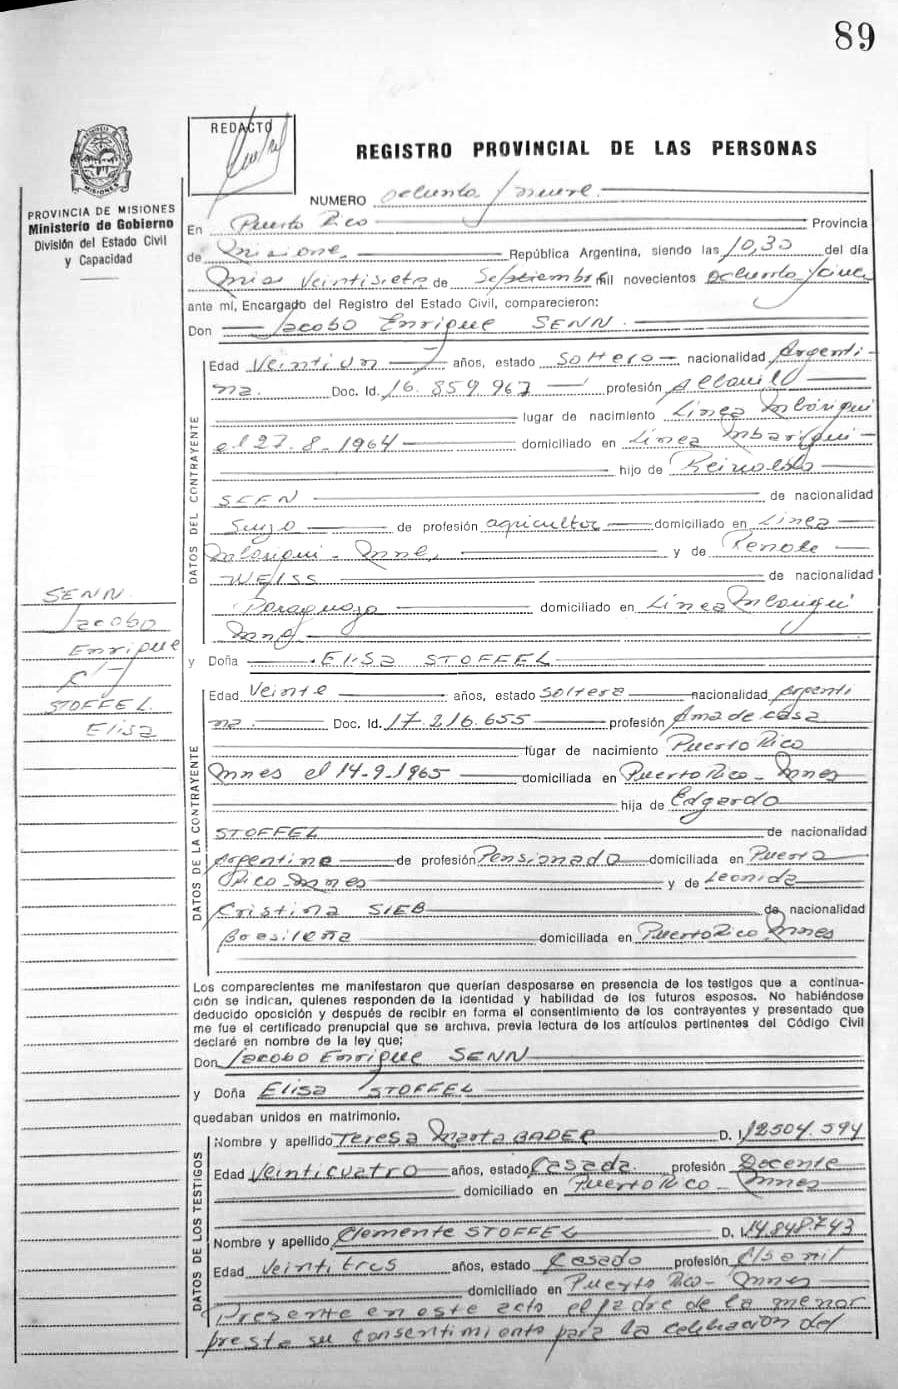 89
REDACTO
REGISTRO PROVINCIAL DE LAS PERSONAS
PROVINCIA DE MISIONES
Ministerio de Gobierno
División del Estado Civil
y Capacidad
NUMERO ochenta y nueve
En Puerto Rico Provincia
de Misiones República Argentina, siendo las 10,30 del día
veintisiete de septiembre mil novecientos ochenta y cinco
ante mí, Encargado del Registro del Estado Civil, comparecieron:
Don Jacobo Enrique SENN
DATOS DEL CONTRAYENTE
Edad Veintiun años, estado Soltero nacionalidad Argenti-
na. Doc. Id. 16.859.967 profesión Albañil
lugar de nacimiento Línea Mbariguí
el 27.8.1964 domiciliado en Línea Mbariguí
hijo de Reinoldo
SEEN de nacionalidad
Suizo de profesión agricultor domiciliado en Linea
Mbarigui - Mnes y de Renate
WEISS de nacionalidad
Paraguaya domiciliado en Línea Mbariguí
Mns
y Doña Elisa STOFFEL
SENN
Jacobo
Enrique
c/
STOFFEL
Elisa
DATOS DE LA CONTRAYENTE
Edad Veinte años, estado Soltera nacionalidad Argenti
na. Doc. Id. 17.216.655 profesión Ama de casa
lugar de nacimiento Puerto Rico
Mnes el 14-9-1965 domiciliada en Puerto Rico - Mnes
hija de Edgardo
STOFFEL de nacionalidad
Argentino de profesión Pensionado domiciliada en Puerto
Rico - Mnes y de Leonida
Cristina SIEB de nacionalidad
Brasileña domiciliada en Puerto Rico Mnes
Los comparecientes me manifestaron que querían desposarse en presencia de los testigos que a continua-
ción se indican, quienes responden de la identidad y habilidad de los futuros esposos. No habiéndose
deducido oposición y después de recibir en forma el consentimiento de los contrayentes y presentado que
me fue el certificado prenupcial que se archiva, previa lectura de los artículos pertinentes del Código Civil
declaré en nombre de la ley que;
Don Jacobo Enrique SENN
y Doña Elisa STOFFEL
quedaban unidos en matrimonio.
DATOS DE LOS TESTIGOS
Nombre y apellido Teresa Marta BADER D. I. 12504.594
Edad Veinticuatro años, estado Casada. profesión Docente
domiciliado en Puerto Rico - Mnes
Nombre y apellido Clemente STOFFEL D. I. 14.848.743
Edad Veintitres años, estado Casado profesión
domiciliado en Puerto Rico - Mnes
Presente en este acto el padre de la menor
presta su consentimiento para la celebración del